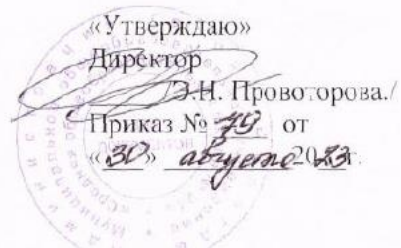 «Утверждаю»
Директор
Э.Н. Провоторова./
Приказ № 79 от
«30» августа 2023г.